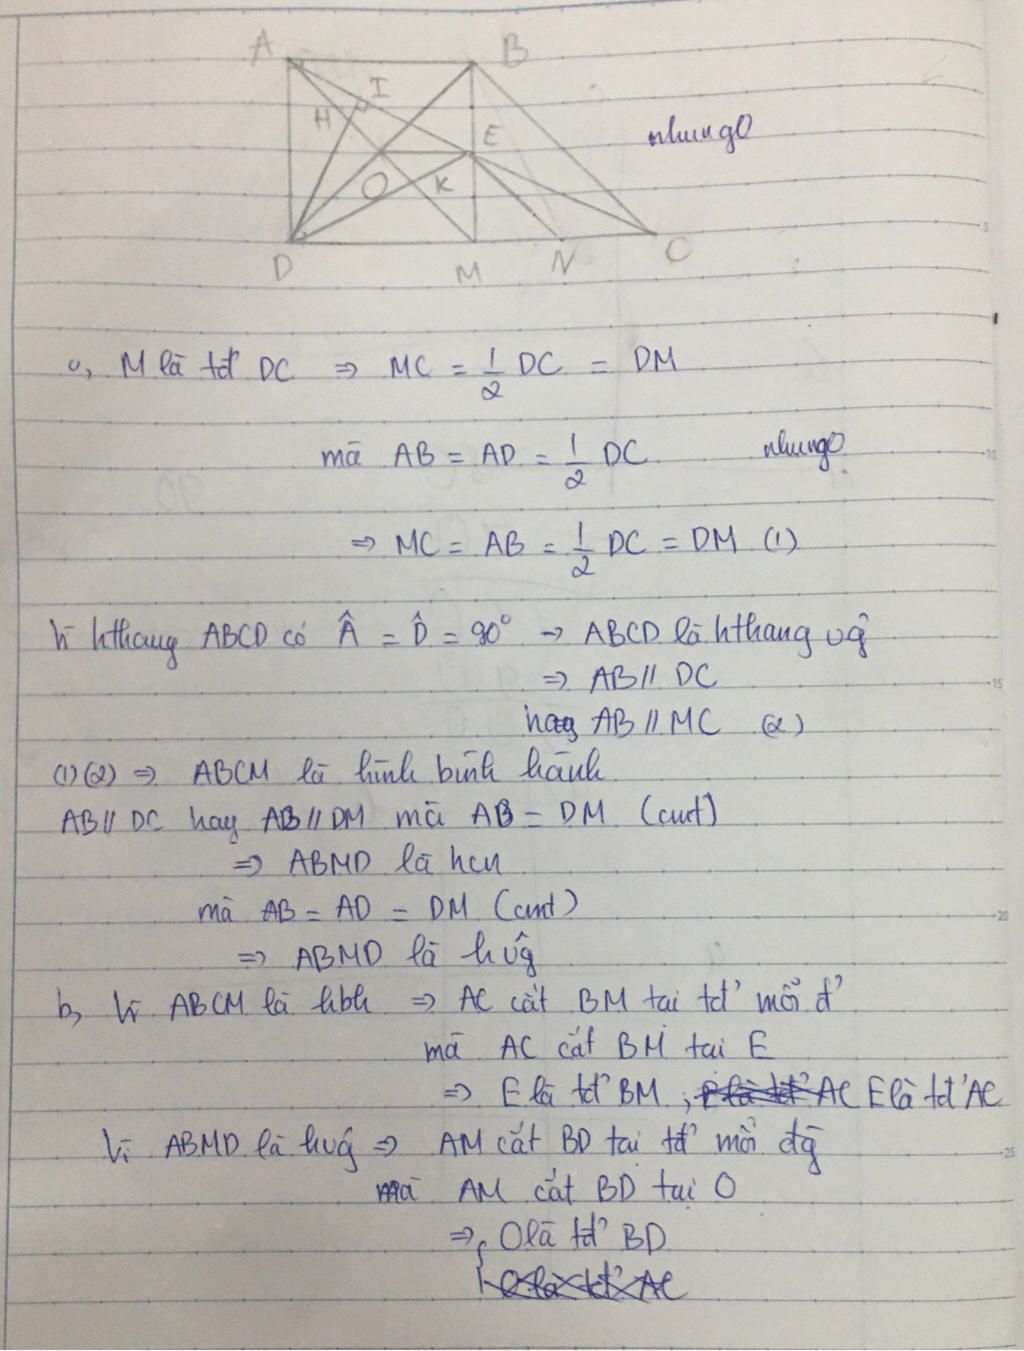 A B
H I
E
nhung0
O K
D M N C
a, M là tđ' DC ⇒ MC = 1/2 DC = DM
mà AB = AD = 1/2 DC nhung0
⇒ MC = AB = 1/2 DC = DM (1)
Vì hthang ABCD có Â = D̂ = 90° → ABCD là hthang vg
⇒ AB // DC
hay AB // MC (2)
(1)(2) ⇒ ABCM là hình bình hành
AB // DC hay AB // DM mà AB = DM (cmt)
⇒ ABMD là hcn
mà AB = AD = DM (cmt)
⇒ ABMD là hvg
b, Vì ABCM là hbh ⇒ AC cắt BM tại tđ' mỗi đ'
mà AC cắt BM tại E
⇒ E là tđ' BM ; E là tđ' AC E là tđ' AC
Vì ABMD là hvg ⇒ AM cắt BD tại tđ' mỗi đg
mà AM cắt BD tại O
⇒ O là tđ' BD
O là tđ' AC